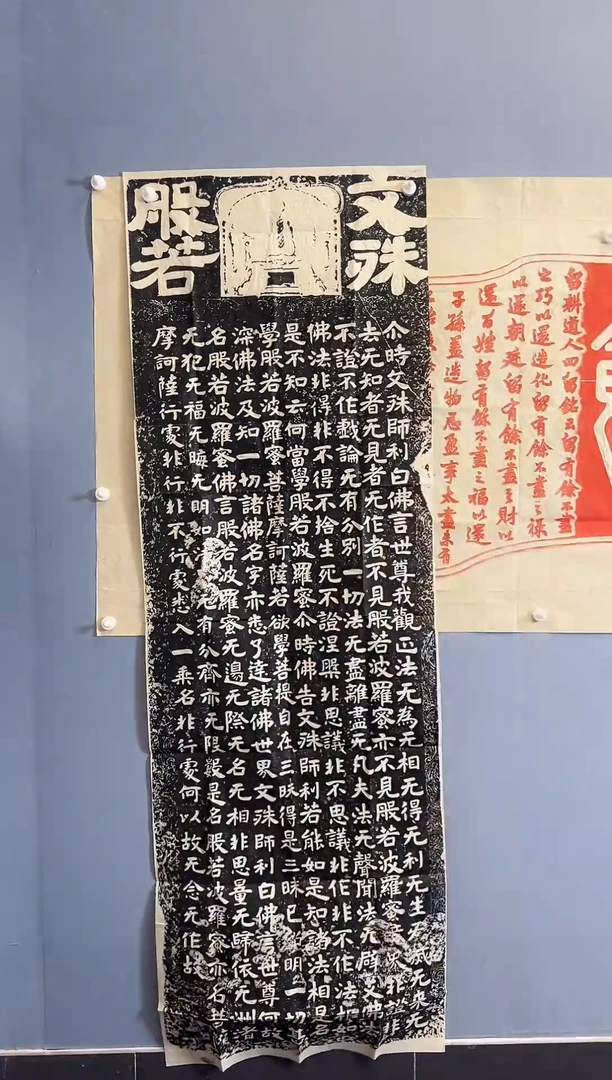 文殊
般若
尒時文殊師利白佛言世尊我觀正法无為无相无得无利无生无滅无來无
去无知者无見者无作者不見般若波羅蜜亦不見般若波羅蜜竟界非證非
不證不作戲論无有分別一切法无盡離盡无凡夫法无聲聞法无辟支佛法
佛法非得非不得不捨生死不證涅槃非思議非不思議非作非不作法相如
是不知云何當學般若波羅蜜尒時佛告文殊師利若能如是知諸法相是名
學般若波羅蜜菩薩摩訶薩若欲學菩提自在三昧得是三昧已照明一切
深佛法及知一切諸佛名字亦悉了達諸佛世界文殊師利白佛言世尊何故
名般若波羅蜜佛言般若波羅蜜无邊无際无名无相非思量无歸依无洲渚
无犯无福无晦无明如法无有分齊亦无限數是名般若波羅蜜亦名菩
摩訶薩行處非行非不行處悉入一乘名非行處何以故无念无作故
留耕道人四留銘云留有餘不盡
之巧以還造化留有餘不盡之祿
以還朝廷留有餘不盡之財以
還百姓留有餘不盡之福以還
子孫蓋造物忌盈事太盡未有